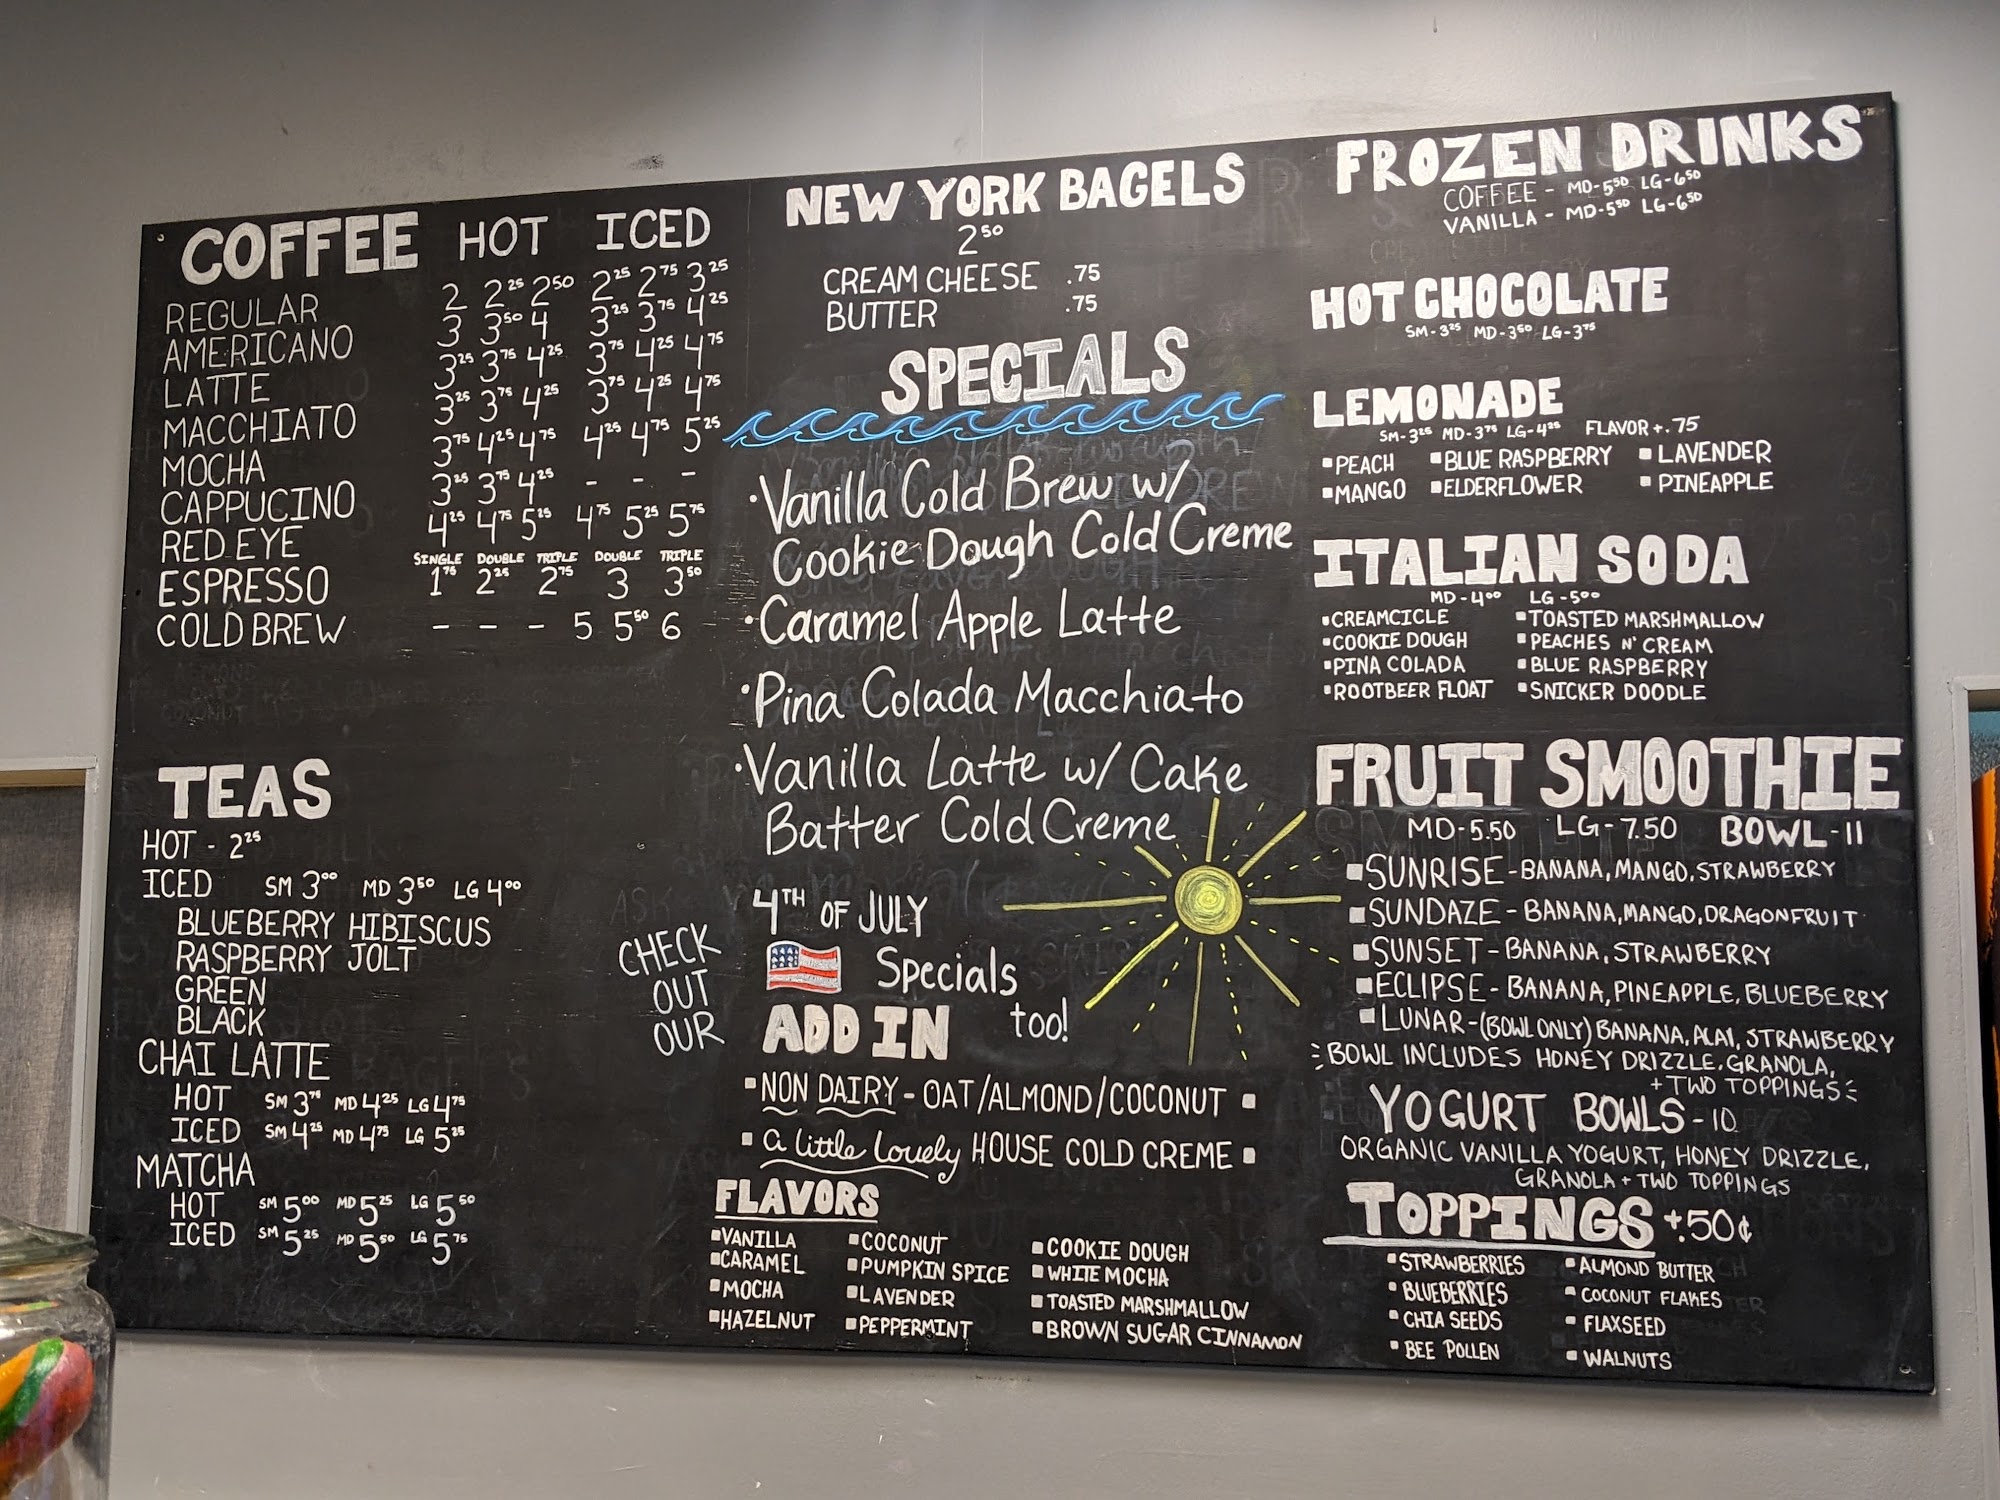 COFFEE HOT ICED
REGULAR 2 2²⁵ 2⁵⁰ 2²⁵ 2⁷⁵ 3²⁵
AMERICANO 3 3⁵⁰ 4 3²⁵ 3⁷⁵ 4²⁵
LATTE 3²⁵ 3⁷⁵ 4²⁵ 3⁷⁵ 4²⁵ 4⁷⁵
MACCHIATO 3²⁵ 3⁷⁵ 4²⁵ 3⁷⁵ 4²⁵ 4⁷⁵
MOCHA 3⁷⁵ 4²⁵ 4⁷⁵ 4²⁵ 4⁷⁵ 5²⁵
CAPPUCINO 3²⁵ 3⁷⁵ 4²⁵ - - -
RED EYE 4²⁵ 4⁷⁵ 5²⁵ 4⁷⁵ 5²⁵ 5⁷⁵
SINGLE DOUBLE TRIPLE DOUBLE TRIPLE
ESPRESSO 1⁷⁵ 2²⁵ 2⁷⁵ 3 3⁵⁰
COLD BREW - - - 5 5⁵⁰ 6
TEAS
HOT - 2²⁵
ICED SM 3⁰⁰ MD 3⁵⁰ LG 4⁰⁰
BLUEBERRY HIBISCUS
RASPBERRY JOLT
GREEN
BLACK
CHAI LATTE
HOT SM 3⁷⁵ MD 4²⁵ LG 4⁷⁵
ICED SM 4²⁵ MD 4⁷⁵ LG 5²⁵
MATCHA
HOT SM 5⁰⁰ MD 5²⁵ LG 5⁵⁰
ICED SM 5²⁵ MD 5⁵⁰ LG 5⁷⁵
NEW YORK BAGELS
2⁵⁰
CREAM CHEESE .75
BUTTER .75
SPECIALS
• Vanilla Cold Brew w/
Cookie Dough Cold Creme
• Caramel Apple Latte
• Pina Colada Macchiato
• Vanilla Latte w/ Cake
Batter Cold Creme
CHECK
OUT
OUR
4TH OF JULY
Specials
too!
ADD IN
▪ NON DAIRY - OAT/ALMOND/COCONUT ▪
▪ a little lovely HOUSE COLD CREME ▪
FLAVORS
▪ VANILLA ▪ COCONUT ▪ COOKIE DOUGH
▪ CARAMEL ▪ PUMPKIN SPICE ▪ WHITE MOCHA
▪ MOCHA ▪ LAVENDER ▪ TOASTED MARSHMALLOW
▪ HAZELNUT ▪ PEPPERMINT ▪ BROWN SUGAR CINNAMON
FROZEN DRINKS
COFFEE - MD-5⁵⁰ LG-6⁵⁰
VANILLA - MD-5⁵⁰ LG-6⁵⁰
HOT CHOCOLATE
SM-3²⁵ MD-3⁵⁰ LG-3⁷⁵
LEMONADE
SM-3²⁵ MD-3⁷⁵ LG-4²⁵ FLAVOR +.75
▪ PEACH ▪ BLUE RASPBERRY ▪ LAVENDER
▪ MANGO ▪ ELDERFLOWER ▪ PINEAPPLE
ITALIAN SODA
MD-4⁰⁰ LG-5⁰⁰
▪ CREAMCICLE ▪ TOASTED MARSHMALLOW
▪ COOKIE DOUGH ▪ PEACHES N' CREAM
▪ PINA COLADA ▪ BLUE RASPBERRY
▪ ROOTBEER FLOAT ▪ SNICKER DOODLE
FRUIT SMOOTHIE
MD-5.50 LG-7.50 BOWL-11
▪ SUNRISE - BANANA, MANGO, STRAWBERRY
▪ SUNDAZE - BANANA, MANGO, DRAGONFRUIT
▪ SUNSET - BANANA, STRAWBERRY
▪ ECLIPSE - BANANA, PINEAPPLE, BLUEBERRY
▪ LUNAR - (BOWL ONLY) BANANA, ACAI, STRAWBERRY
BOWL INCLUDES HONEY DRIZZLE, GRANOLA,
+ TWO TOPPINGS
YOGURT BOWLS - 10
ORGANIC VANILLA YOGURT, HONEY DRIZZLE,
GRANOLA + TWO TOPPINGS
TOPPINGS +.50¢
▪ STRAWBERRIES ▪ ALMOND BUTTER
▪ BLUEBERRIES ▪ COCONUT FLAKES
▪ CHIA SEEDS ▪ FLAXSEED
▪ BEE POLLEN ▪ WALNUTS